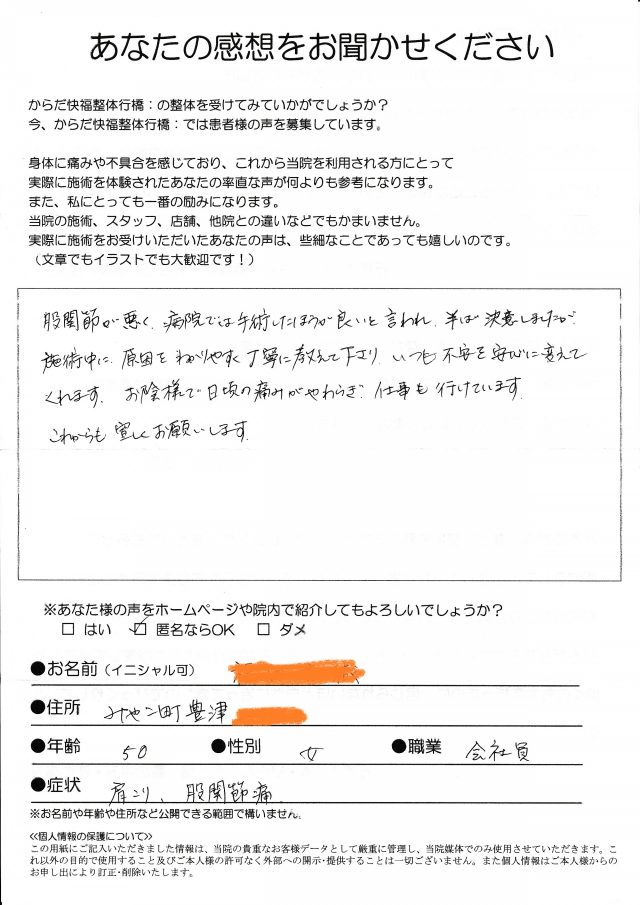 あなたの感想をお聞かせください
からだ快福整体行橋：の整体を受けてみていかがでしょうか？
今、からだ快福整体行橋：では患者様の声を募集しています。
身体に痛みや不具合を感じており、これから当院を利用される方にとって
実際に施術を体験されたあなたの率直な声が何よりも参考になります。
また、私にとっても一番の励みになります。
当院の施術、スタッフ、店舗、他院との違いなどでもかまいません。
実際に施術をお受けいただいたあなたの声は、些細なことであっても嬉しいのです。
（文章でもイラストでも大歓迎です！）
股関節が悪く、病院では手術したほうが良いと言われ、半ば決意しましたが、
施術中に、原因をわかりやすく丁寧に教えて下さり、いつも不安を安心に変えて
くれます。お陰様で日頃の痛みがやわらぎ、仕事も行けています。
これからも宜しくお願いします。
※あなた様の声をホームページや院内で紹介してもよろしいでしょうか？
□ はい ☑ 匿名ならOK □ ダメ
●お名前（イニシャル可）
●住所 みやこ町豊津
●年齢 50 ●性別 女 ●職業 会社員
●症状 肩こり、股関節痛
※お名前や年齢や住所など公開できる範囲で構いません。
≪個人情報の保護について≫
この用紙にご記入いただきました情報は、当院の貴重なお客様データとして厳重に管理し、当院媒体でのみ使用させていただきます。こ
れ以外の目的で使用すること及びご本人様の許可なく外部への開示・提供することは一切ございません。また個人情報はご本人様からの
お申し出により訂正・削除いたします。